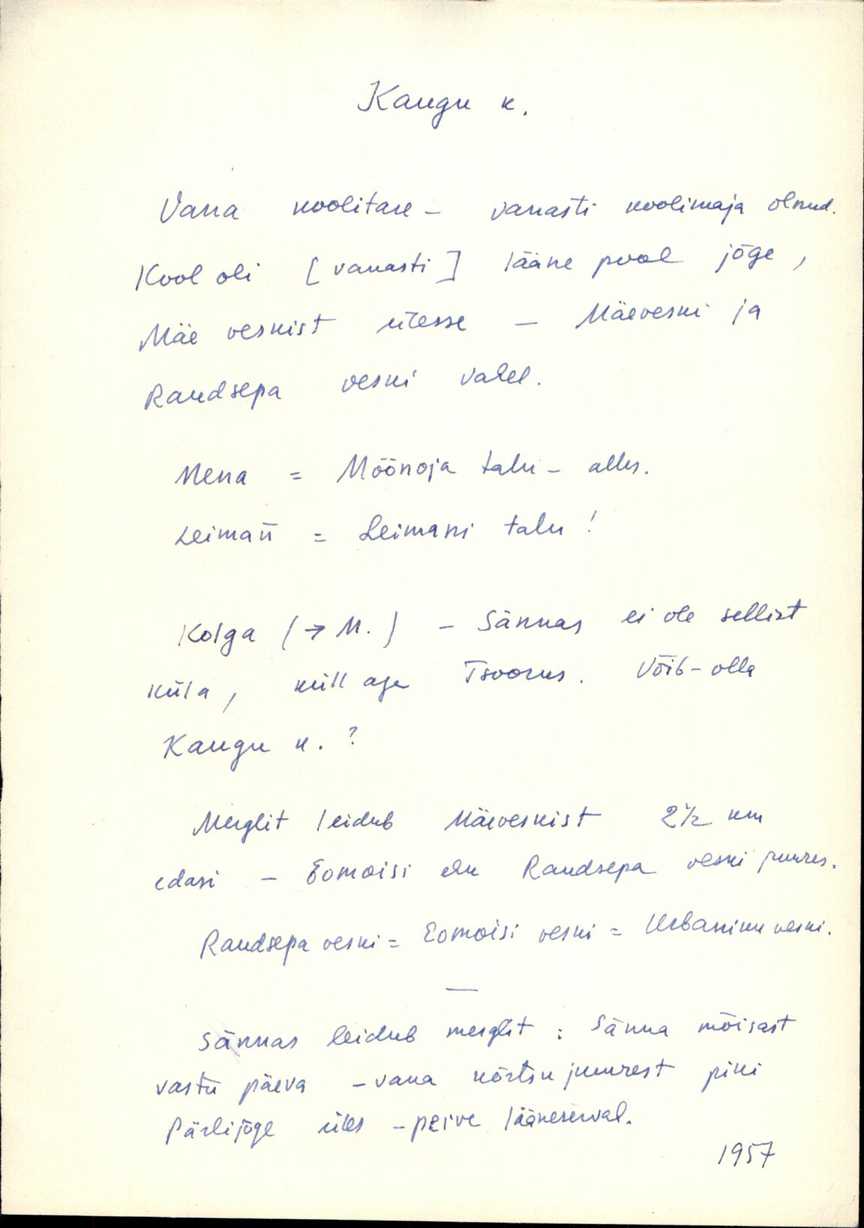 Kangu k.
Vana koolitare – vanasti koolimaja olnud.
Kool oli [vanasti] lääne pool jõge,
Mäe veskist ülesse – Mäeveski ja
Raudsepa veski vahel.
Mena = Möönoja talu – alles.
Leimań = Leimani talu!
Kolga (→ M.) – Sännas ei ole sellist
küla, küll aga Tsoorus. Võib-olla
Kangu k.?
Merglit leidub Mäeveskist 2½ km
edasi – Eomoisi ehk Raudsepa veski juures.
Raudsepa veski = Eomoisi veski = Urbaniku veski.
—
Sännas leidub merglit: Sänna mõisast
vastu päeva – vana kõrtsu juurest piki
Pärlijõge üles – läänekerval.
1957